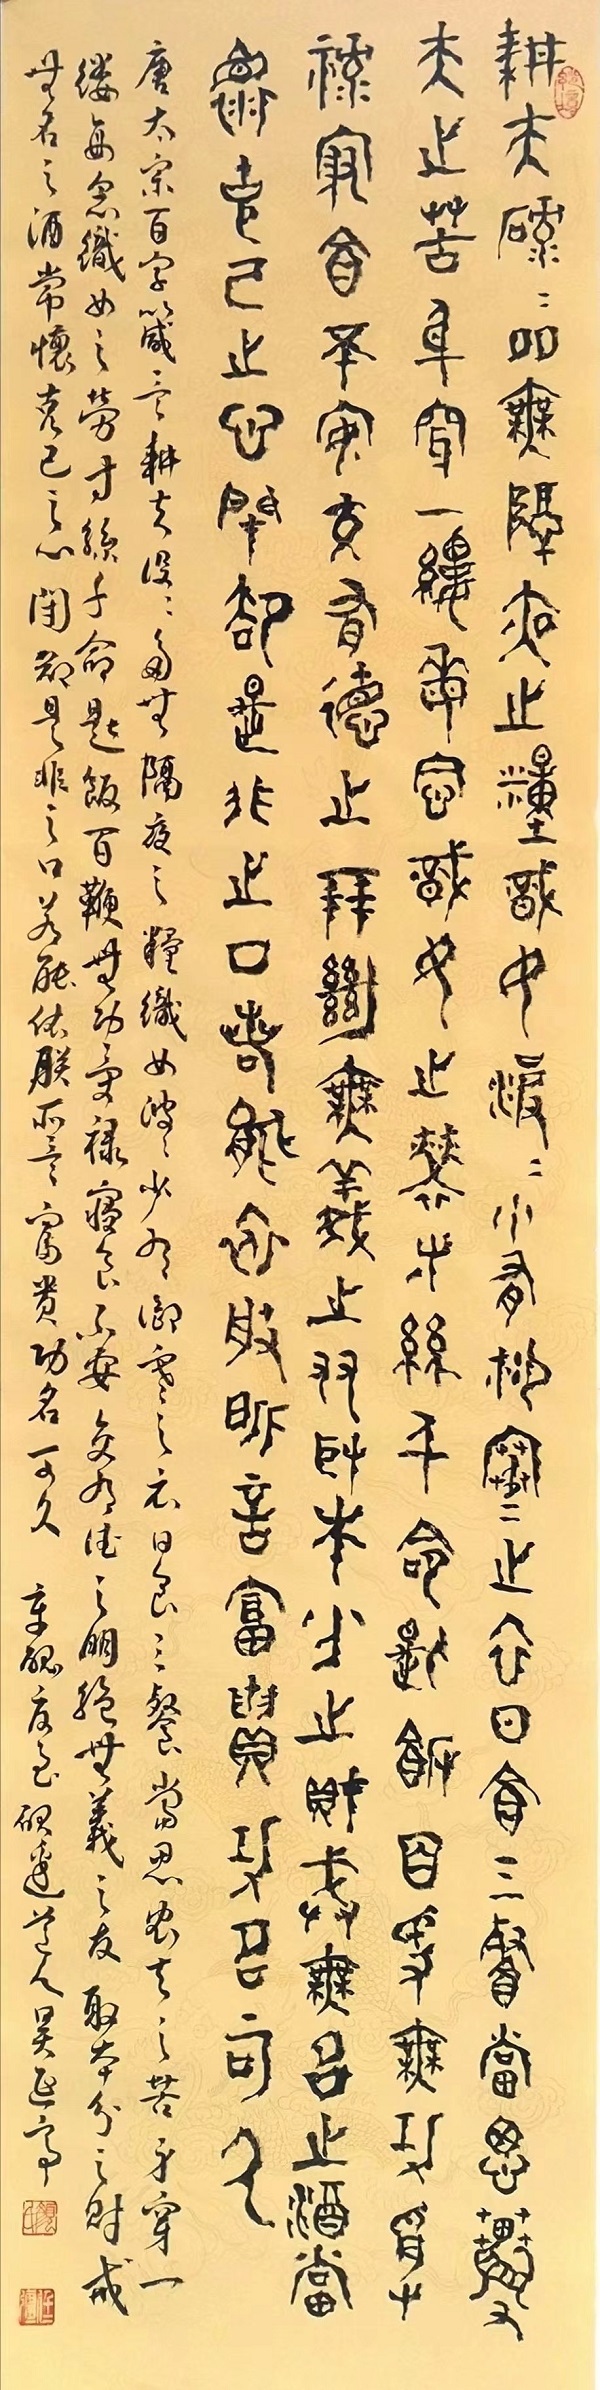 耕夫碌碌多無隔夜之糧織女波波少有御寒之衣日食三餐當思農
夫之苦身穿一縷每念織女之勞寸絲千命匙飯百鞭無功受
祿寢食不安交有德之朋絕無義之友取本分之財戒無名之酒常
懷克己之心閉卻是非之口若能依朕所言富貴功名可久
唐太宗百字箴言耕夫役役多無隔夜之糧織女波波少有御寒之衣日食三餐當思農夫之苦身穿一
縷每念織女之勞寸絲千命匙飯百鞭無功受祿寢食不安交有德之朋絕無義之友取本分之財戒
無名之酒常懷克己之心閉卻是非之口若能依朕所言富貴功名可久 辛醜夏至 道人吳延